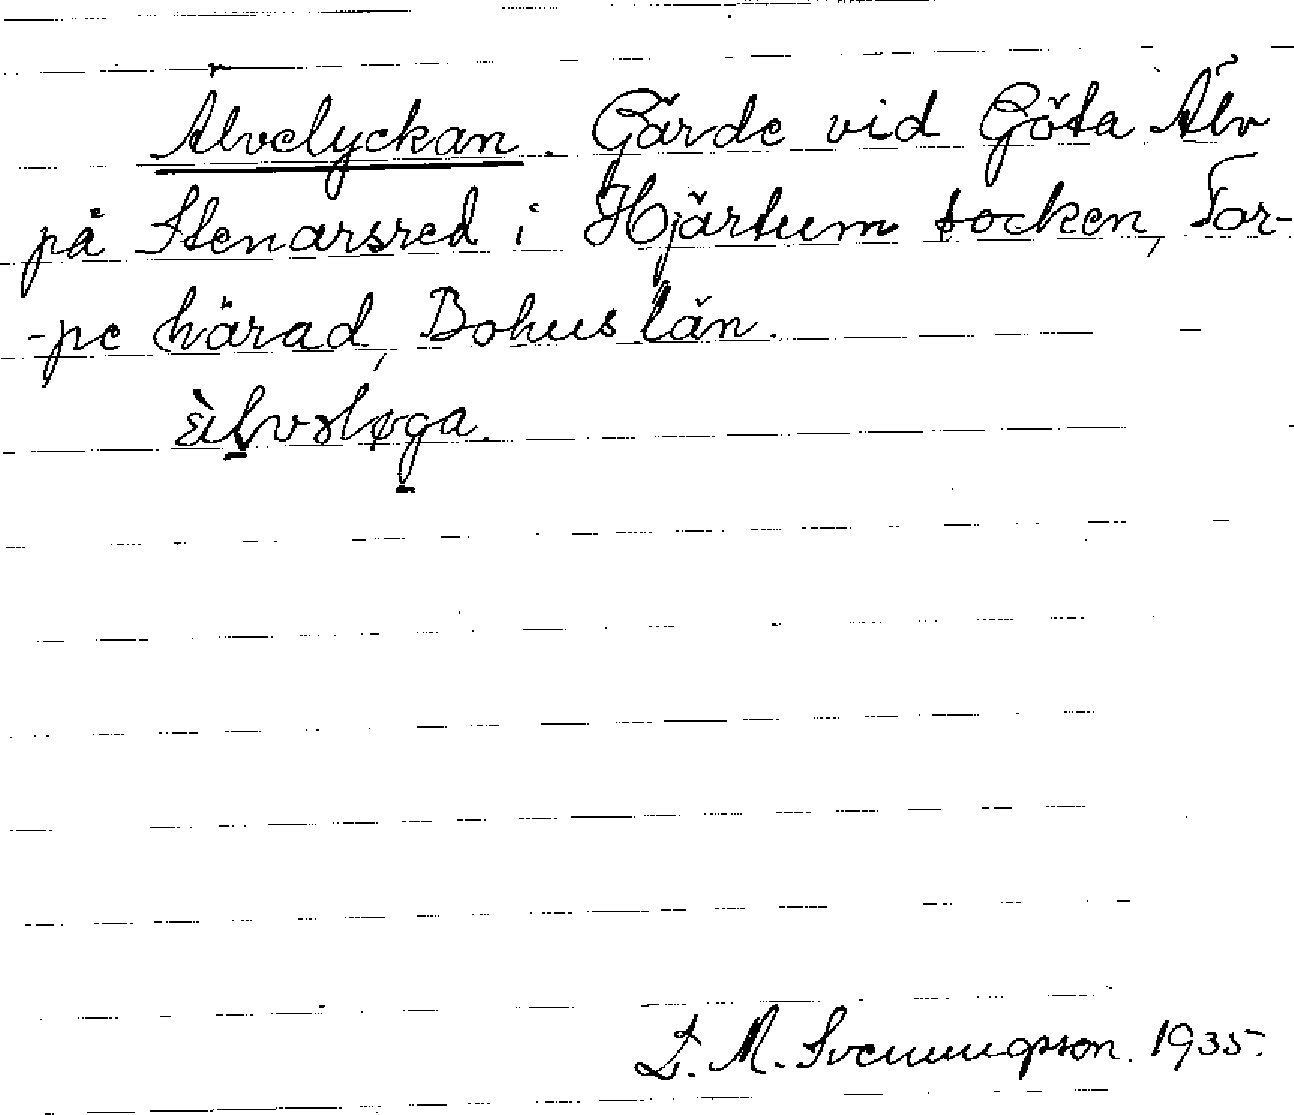 Älvelyckan. Gärde vid Göta Älv
på Stenarsred i Hjärtum socken, Tor-
-pe härad, Bohus län.
S. M. Svenungsson. 1935.